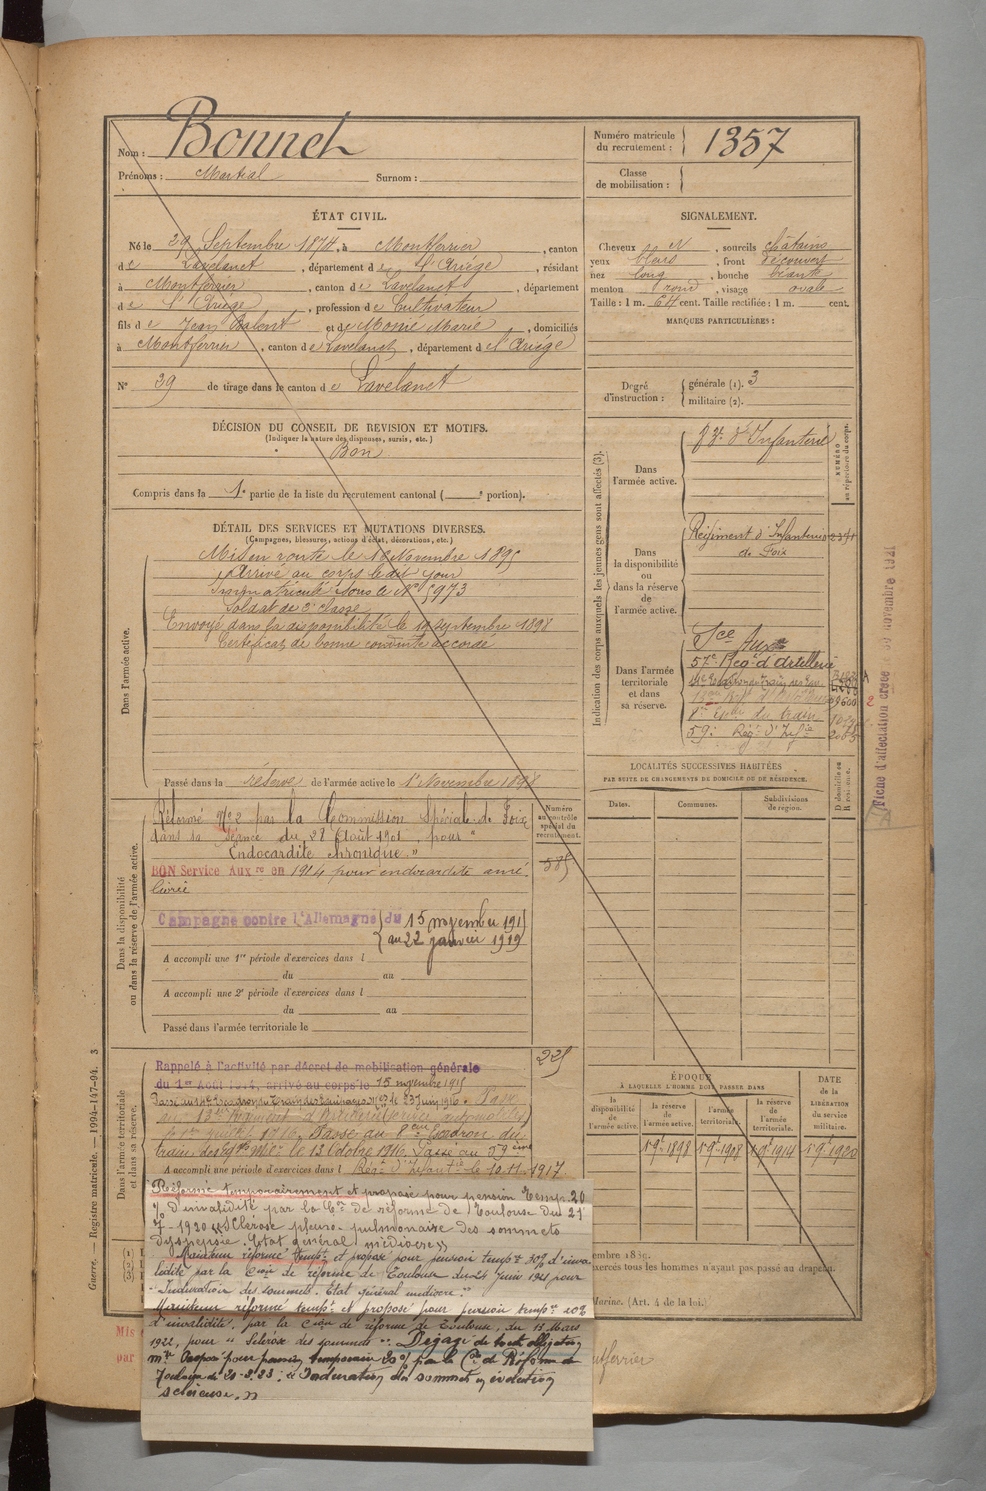 Nom : Bonnet
Prénoms : Martial Surnom :
Numéro matricule du recrutement : 1357
Classe de mobilisation :
ÉTAT CIVIL.
Né le 29 Septembre 1874, à Montferrier, canton
de Lavelanet, département de l'Ariège, résidant
à Montferrier, canton de Lavelanet, département
de l'Ariège, profession de Cultivateur
fils de Jean Balent et de Monié Marie, domiciliés
à Montferrier, canton de Lavelanet, département de l'Ariège
N° 39 de tirage dans le canton de Lavelanet
SIGNALEMENT.
Cheveux N, sourcils châtains
yeux bleus, front découvert
nez long, bouche béante
menton rond, visage ovale
Taille : 1 m. 64 cent. Taille rectifiée : 1 m. cent.
MARQUES PARTICULIÈRES :
Degré d'instruction : générale (1). 3
militaire (2).
DÉCISION DU CONSEIL DE REVISION ET MOTIFS.
(Indiquer la nature des dispenses, sursis, etc.)
Bon
Compris dans la 1e partie de la liste du recrutement cantonal ( e portion).
DÉTAIL DES SERVICES ET MUTATIONS DIVERSES.
(Campagnes, blessures, actions d'éclat, décorations, etc.)
Dans l'armée active.
Mis en route le 16 Novembre 1895
Arrivé au corps ledit jour
Immatriculé sous le N° 5973
Soldat de 2e classe
Envoyé dans la disponibilité le 19 Septembre 1898
Certificat de bonne conduite accordé
Passé dans la réserve de l'armée active le 1er Novembre 1898
Dans la disponibilité ou dans la réserve de l'armée active.
Réformé N°2 par la Commission Spéciale de Foix
dans sa séance du 28 Août 1901, pour "
Endocardite chronique."
BON Service Auxre en 1914 pour endocardite amé-
liorée
Campagne contre l'Allemagne du 15 novembre 1915
au 22 janvier 1919
A accompli une 1re période d'exercices dans l
du au
A accompli une 2e période d'exercices dans l
du au
Passé dans l'armée territoriale le
Numéro au contrôle spécial du recrutement.
585
225
Dans l'armée territoriale et dans sa réserve.
Rappelé à l'activité par décret de mobilisation générale
du 1er Août 1914, arrivé au corps le 15 novembre 1915
A accompli une période d'exercices dans l Régt d'Infantie le 10.11.1917
Réformé temporairement et proposé pour pension temp. 20
% d'invalidité par la Con de réforme de Toulouse du 21
7-1920 "Sclérose pleuro-pulmonaire des sommets
dyspepsie. Etat général médiocre"
Maintenu réformé tempt et proposé pour pension tempre 30% d'inva-
lidité par la Cion de réforme de Toulouse du 24 juin 1921 pour
"Induration des sommets. Etat général médiocre."
Maintenu réformé tempt et proposé pour pension tempre 20%
d'invalidité, par la Cion de réforme de Toulouse, du 13 Mars
1922, pour "Sclérose des sommets". Dégagé de toute obligation
mre Proposé pour pension temporaire 20% par la Con de Réforme de
Toulouse du 20-3.23 : "Induration des sommets en évolution
scléreuse."
Indication des corps auxquels les jeunes gens sont affectés (3).
NUMÉRO au répertoire du corps.
Dans l'armée active.
Dans la disponibilité ou dans la réserve de l'armée active.
Régiment d'Infanterie
de Foix
Dans l'armée territoriale et dans sa réserve.
Sce Auxre
57e Régt d'Artillerie
59e Régt d'Infie
Fiche d'affectation créée le 30 novembre 1921
LOCALITÉS SUCCESSIVES HABITÉES
PAR SUITE DE CHANGEMENTS DE DOMICILE OU DE RÉSIDENCE.
Dates. Communes. Subdivisions de région. D domicile ou R résidence.
ÉPOQUE
À LAQUELLE L'HOMME DOIT PASSER DANS
la disponibilité de l'armée active. la réserve de l'armée active. l'armée territoriale. la réserve de l'armée territoriale.
DATE de la LIBÉRATION du service militaire.
1 9e 1898 1 9e 1908 1 9e 1914 1 9e 1920
Guerre. — Registre matricule. — 1994-147-94. 3
embre 1889.
exercés tous les hommes n'ayant pas passé au drapeau.
Marine. (Art. 4 de la loi.)
Mis
par